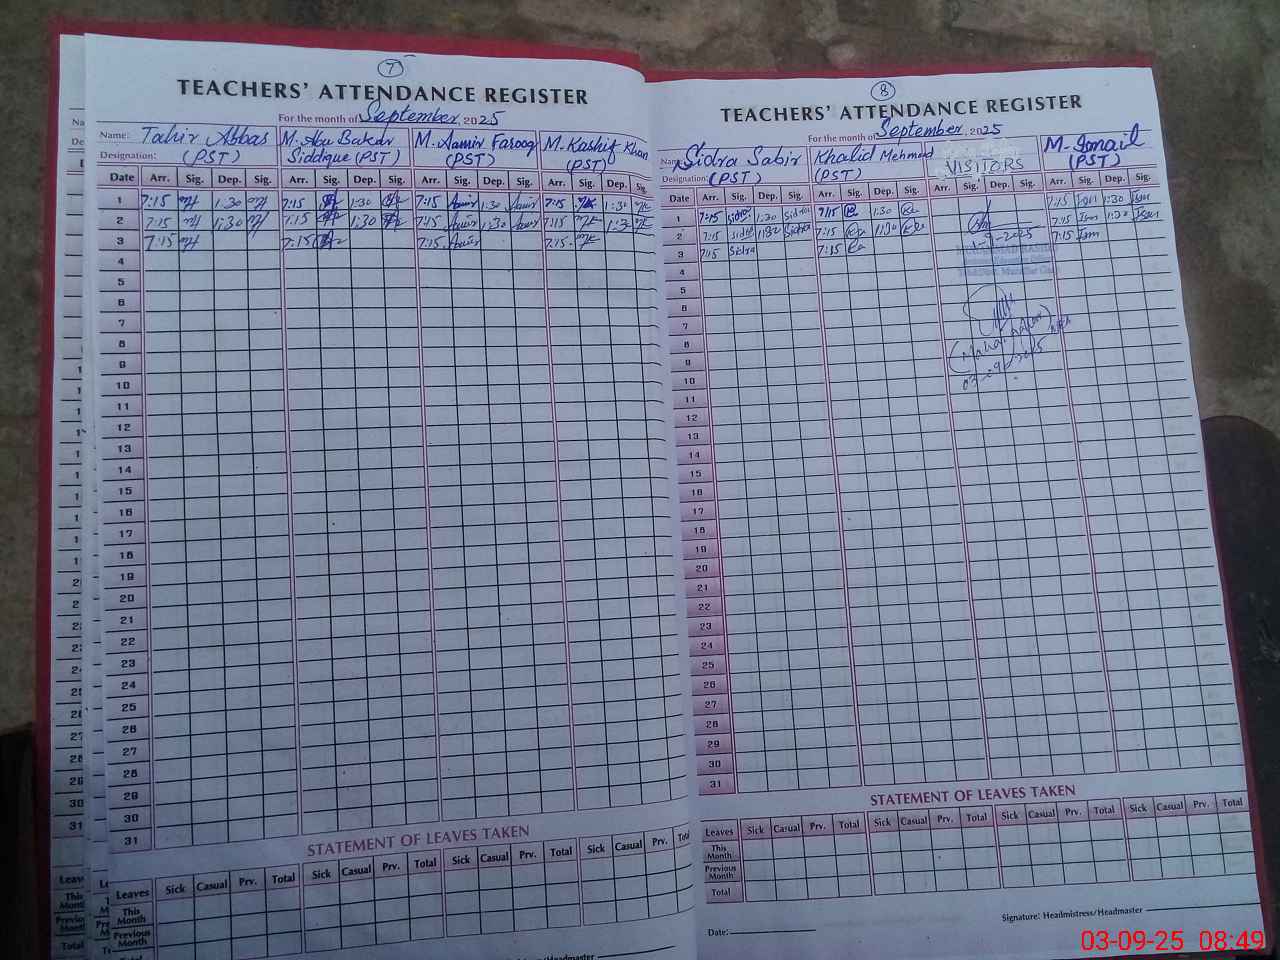 7
TEACHERS' ATTENDANCE REGISTER
For the month of September, 2025
Name: Tahir Abbas M. Abu Bakar M. Aamir Farooq M. Kashif Khan
Designation: (PST) Siddique (PST) (PST) (PST)
Date Arr. Sig. Dep. Sig. Arr. Sig. Dep. Sig. Arr. Sig. Dep. Sig. Arr. Sig. Dep. Sig.
1 7:15 1:30 7:15 1:30 7:15 Aamir 1:30 Aamir 7:15 1:30
2 7:15 1:30 7:15 1:30 7:15 Aamir 1:30 Aamir 7:15 1:30
3 7:15 7:15 7:15 Aamir 7:15
4
5
6
7
8
9
10
11
12
13
14
15
16
17
18
19
20
21
22
23
24
25
26
27
28
29
30
31
STATEMENT OF LEAVES TAKEN
Leaves Sick Casual Prv. Total Sick Casual Prv. Total Sick Casual Prv. Total
This Month
Previous Month
8
TEACHERS' ATTENDANCE REGISTER
For the month of September, 2025
Name: Sidra Sabir Khalid Mehmood VISITORS M. Ismail
Designation: (PST) (PST) (PST)
Date Arr. Sig. Dep. Sig. Arr. Sig. Dep. Sig. Arr. Sig. Dep. Sig. Arr. Sig. Dep. Sig.
1 7:15 Sidra 1:30 Sidra 7:15 1:30 7:15 Ism 1:30 Ism
2 7:15 Sidra 1:30 Sidra 7:15 1:30 7:15 Ism 1:30 Ism
3 7:15 Sidra 7:15 7:15 Ism
4
5
6
7
8
9
10
11
12
13
14
15
16
17
18
19
20
21
22
23
24
25
26
27
28
29
30
31
03-09-2025
STATEMENT OF LEAVES TAKEN
Leaves Sick Casual Prv. Total Sick Casual Prv. Total Sick Casual Prv. Total Sick Casual Prv. Total
This Month
Previous Month
Total
Signature: Headmistress/Headmaster
Date:
03-09-25 08:49